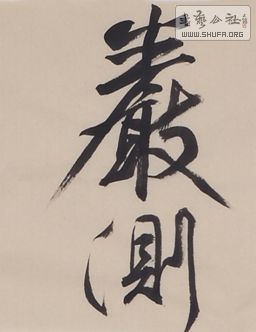 書藝公社
WWW.SHUFA.ORG
嚴
測